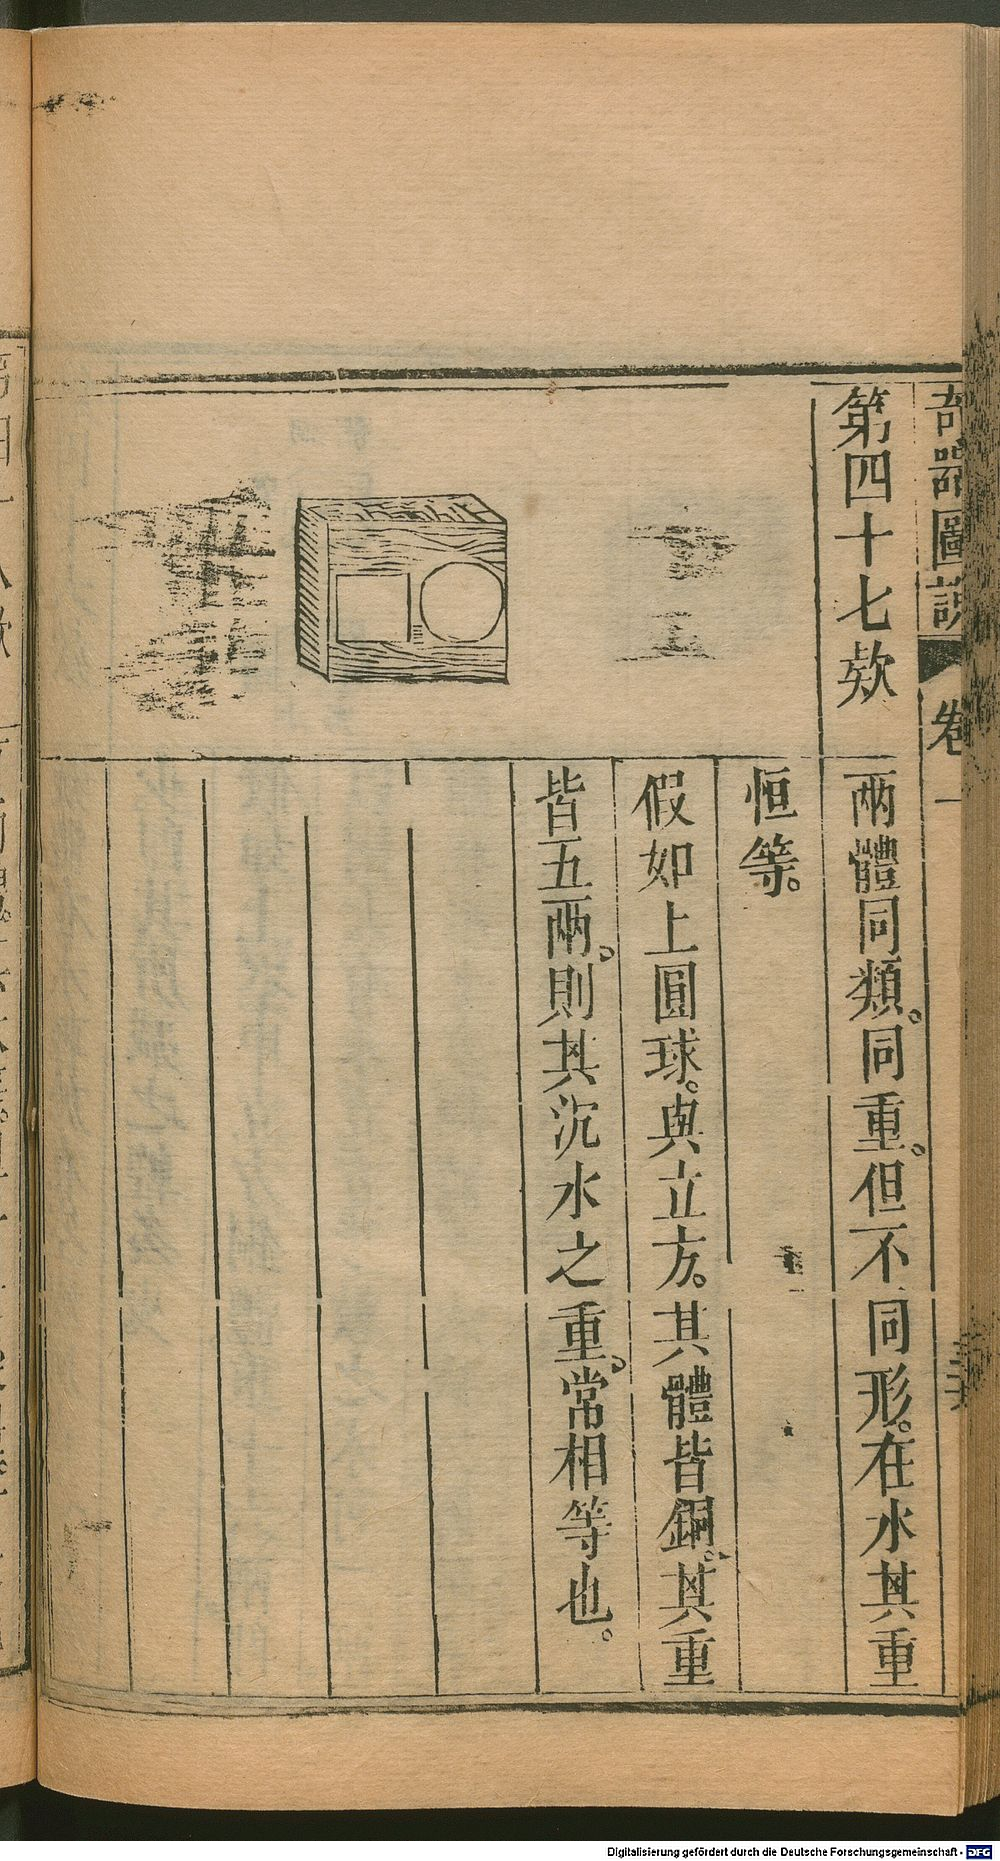 奇器圖說 卷一
第四十七欵
兩體同類。同重。但不同形。在水其重
恒等。
假如上圓球。與立方。其體皆銅。其重
皆五兩。則其沉水之重。常相等也。
Digitalisierung gefördert durch die Deutsche Forschungsgemeinschaft - DFG